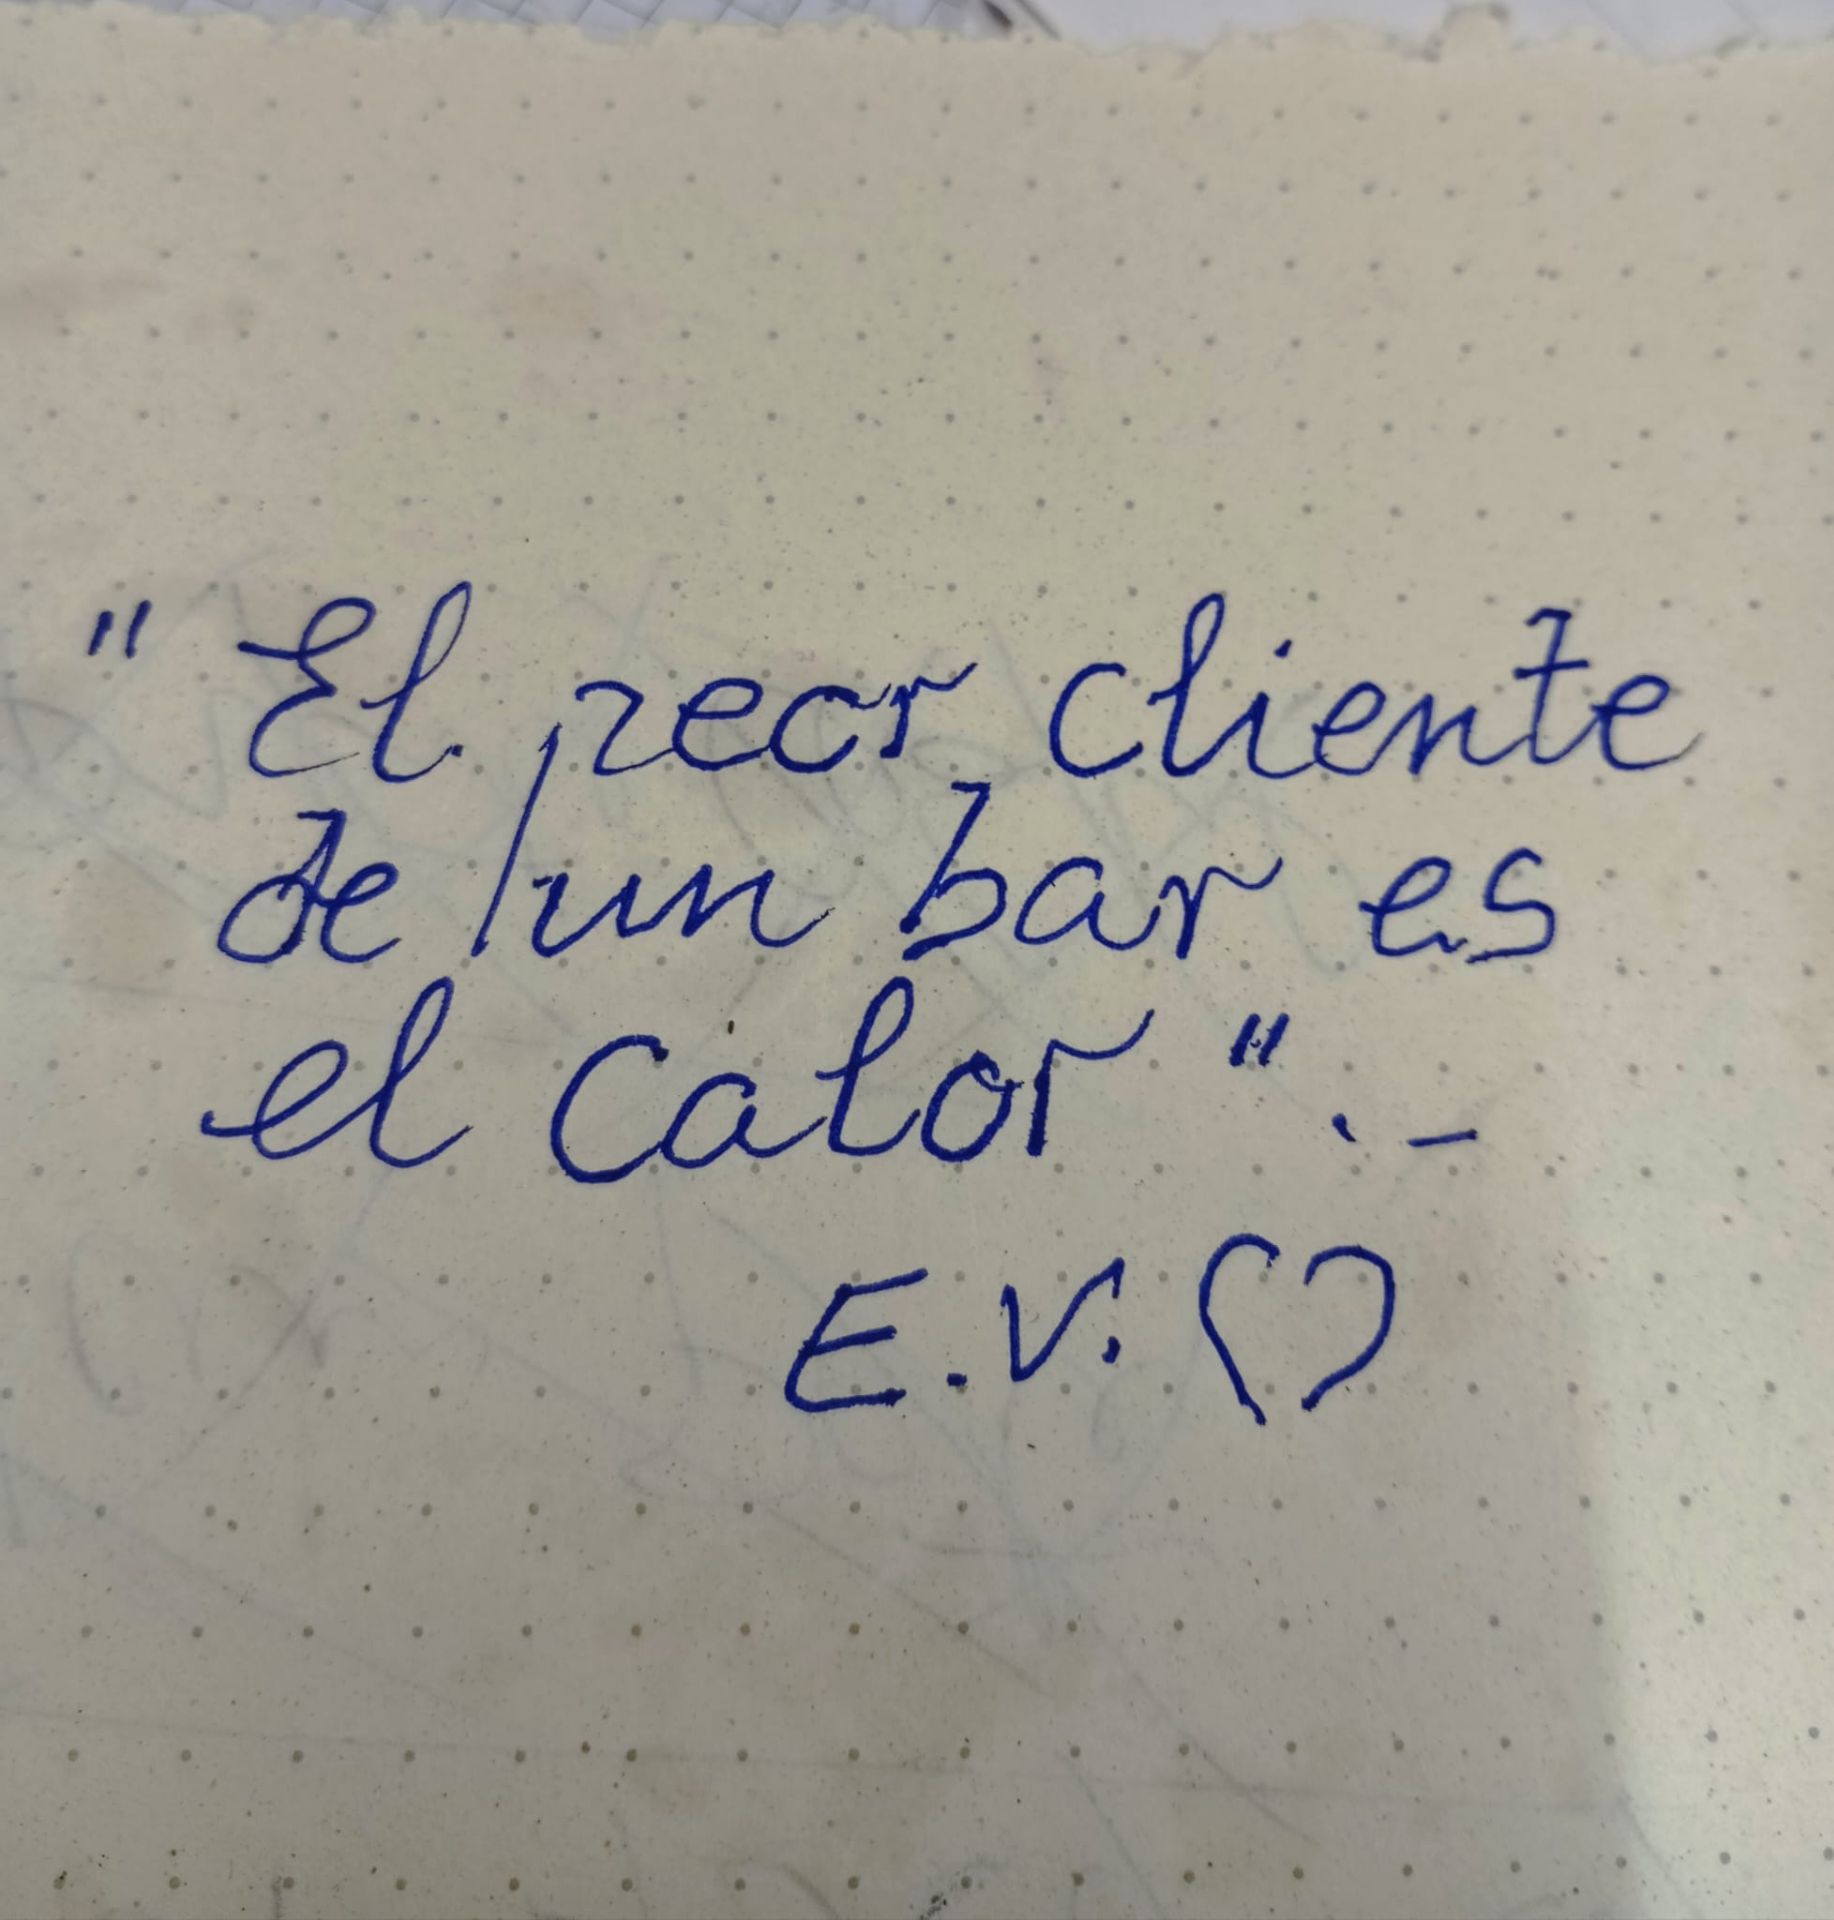 " El peor cliente
de un bar es
el calor " . -
E.V. ♡